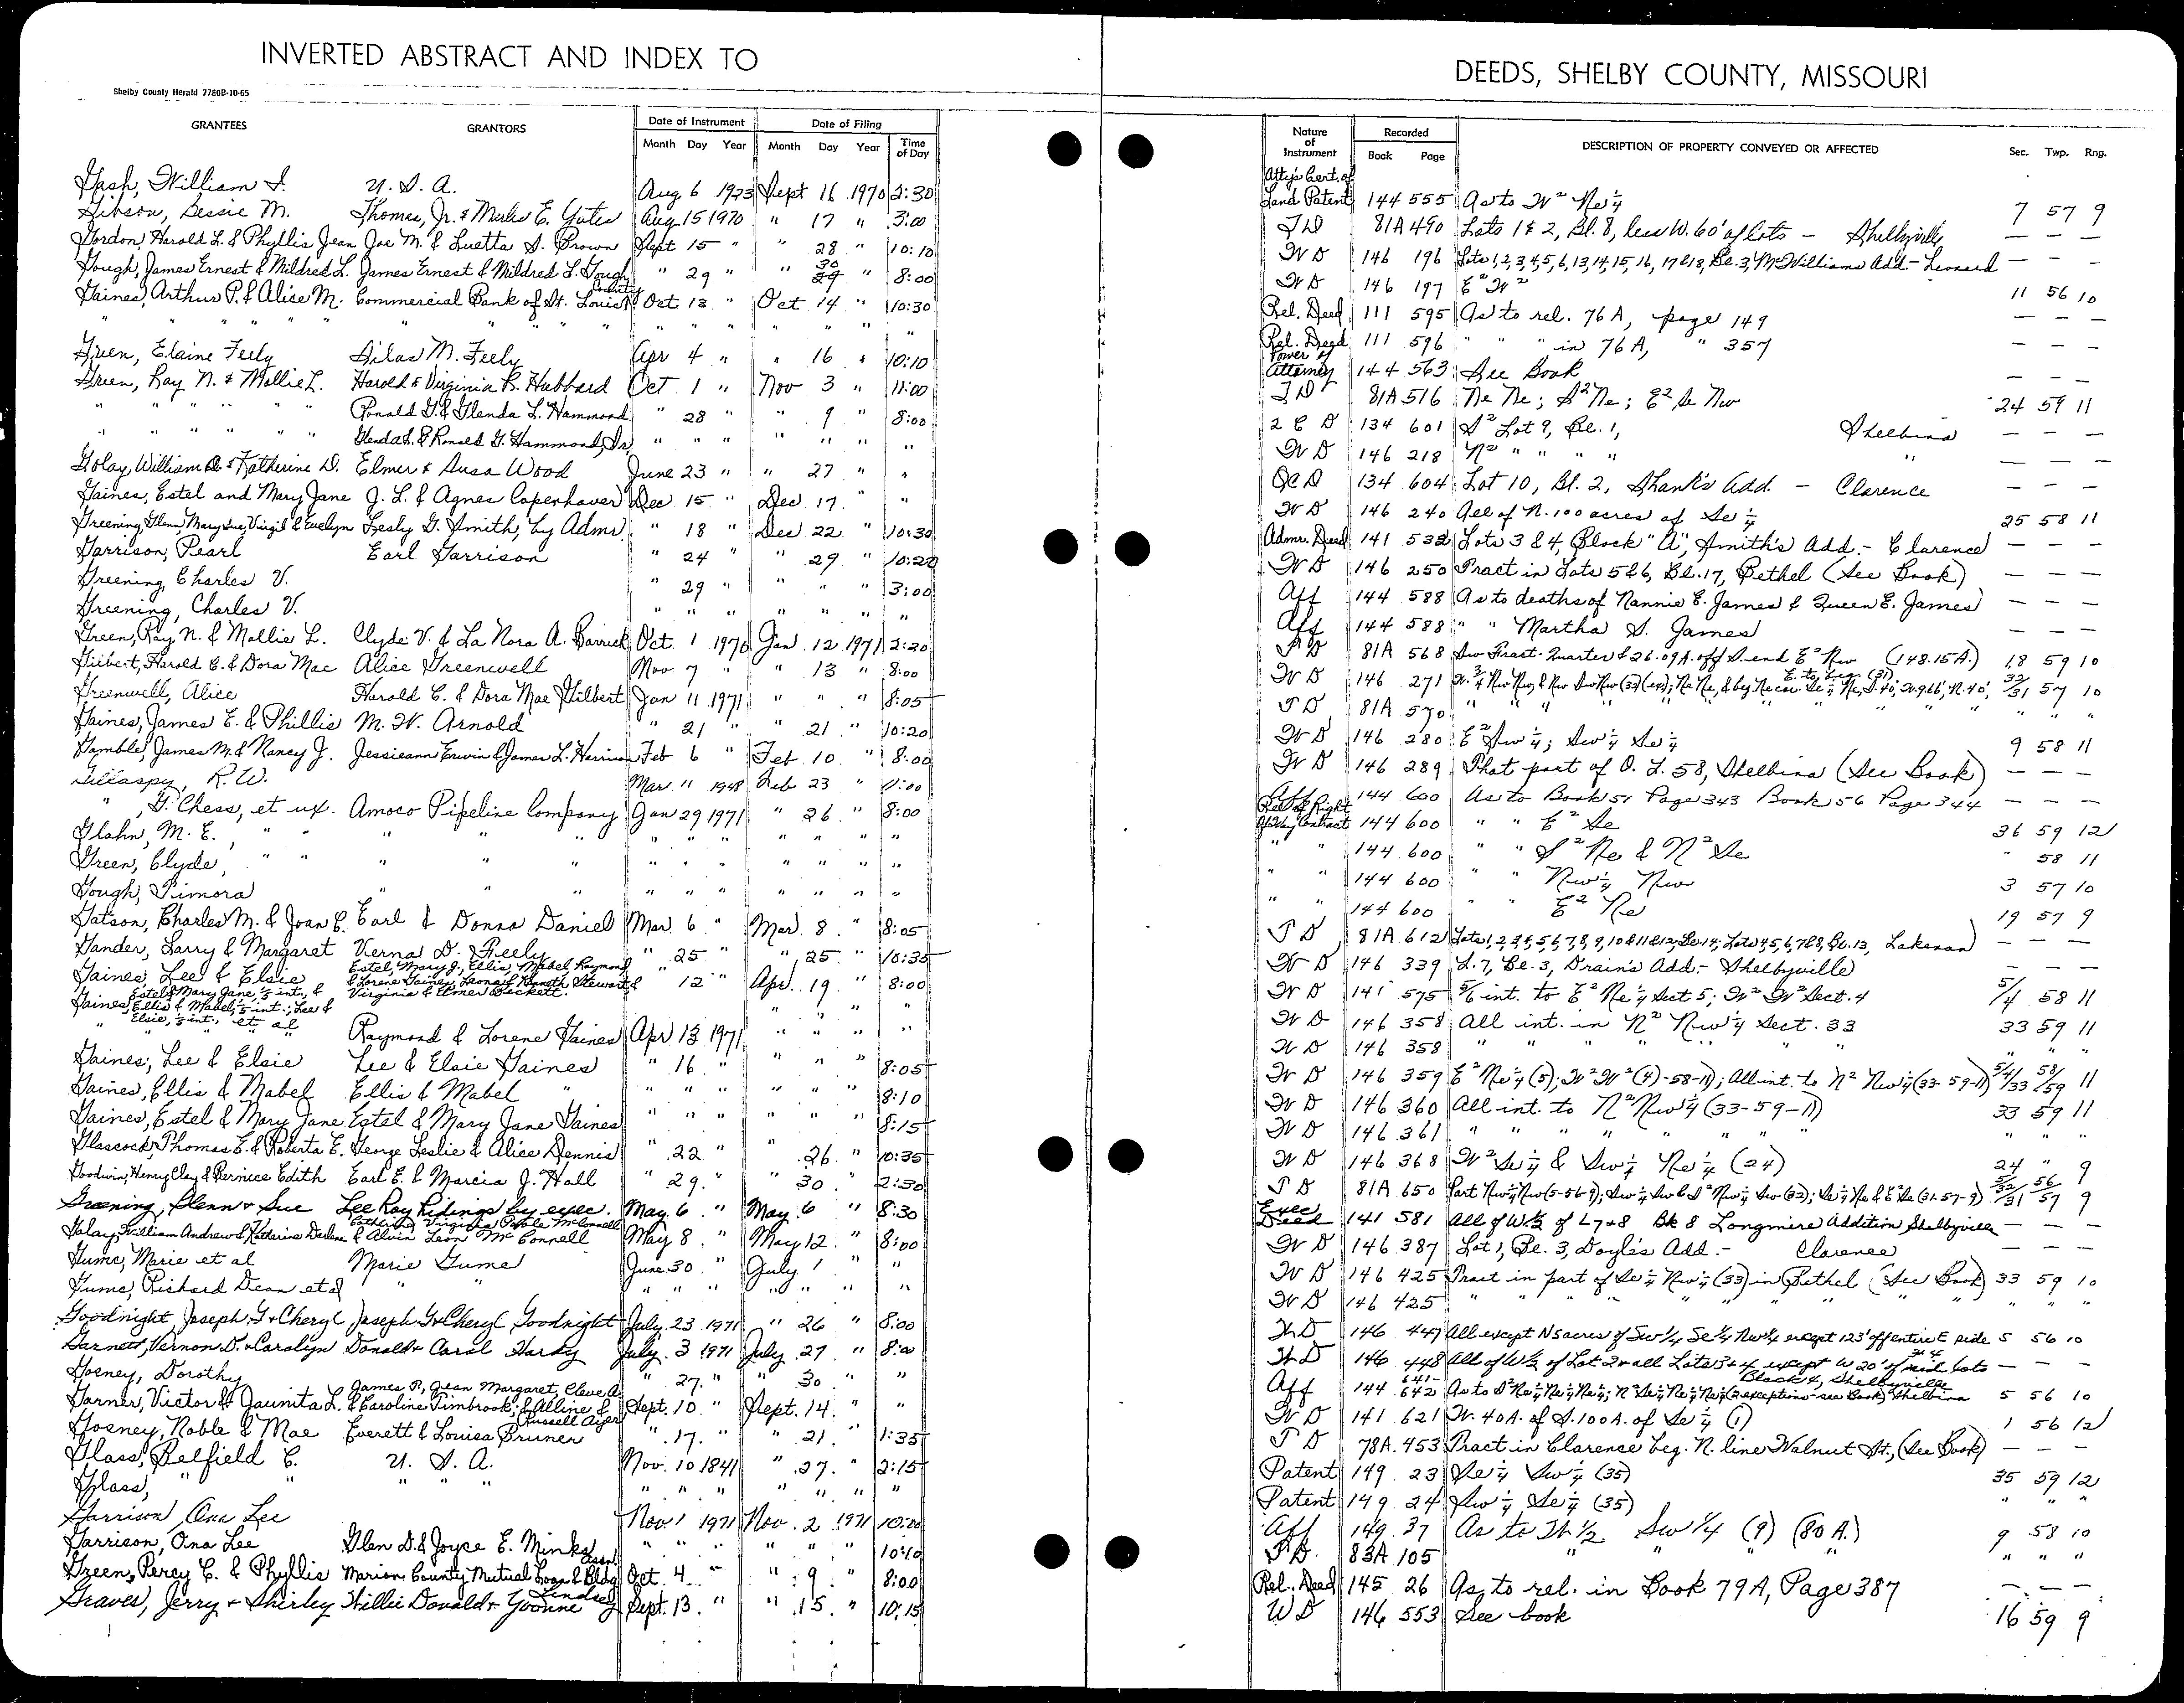 INVERTED ABSTRACT AND INDEX TO
DEEDS, SHELBY COUNTY, MISSOURI
Shelby County Herald 7780B-10-65
GRANTEES GRANTORS Date of Instrument Date of Filing
Month Day Year Month Day Year Time of Day
Nature of Instrument Recorded Book Page DESCRIPTION OF PROPERTY CONVEYED OR AFFECTED Sec. Twp. Rng.
Gash, William I. U. S. A. Aug 6 1923 Sept 16 1970 2:30
Gibson, Bessie M. Thomas, Jr. & Merle E. Yates Aug 15 1970 " 17 " 3:00
Gordon, Harold L. & Phyllis Jean Joe M. & Luetta S. Brown Sept 15 " " 28 " 10:10
Gough, James Ernest & Mildred L. James Ernest & Mildred L. Gough " 29 " " 30 " 8:00
Gaines, Arthur P. & Alice M. Commercial Bank of St. Louis County Oct 13 " Oct 14 " 10:30
" " " " " " " " " " " "
Green, Elaine Feely Silas M. Feely Apr 4 " " 16 " 10:10
Green, Ray N. & Mollie L. Harold & Virginia B. Hubbard Oct 1 " Nov 3 " 11:00
" " " " " Ronald G. & Glenda L. Hammond " 28 " " 9 " 8:00
" " " " " Glenda L. & Ronald G. Hammond, Sr. " " " " " " "
Golay, William A. & Katherine D. Elmer & Susa Wood June 23 " " 27 " "
Gaines, Estel and Mary Jane J. L. & Agnes Copenhaver Dec 15 " Dec 17 " "
Greening, Glenn, Mary Sue, Virgil & Evelyn Lesly G. Smith, by Admr. " 18 " Dec 22 " 10:30
Garrison, Pearl Earl Garrison " 24 " " 29 " 10:20
Greening, Charles V. " 29 " " " " 3:00
Greening, Charles V. " " " " " " "
Green, Ray N. & Mollie L. Clyde V. & La Nora A. Barrick Oct. 1 1970 Jan 12 1971 2:20
Gilbert, Harold C. & Dora Mae Alice Greenwell Nov 7 " " 13 " 8:00
Greenwell, Alice Harold C. & Dora Mae Gilbert Jan 11 1971 " " " 8:05
Gaines, James E. & Phillis M. W. Arnold " 21 " " 21 " 10:20
Gamble, James M. & Nancy J. Jessieann Erwin & James L. Harrison Feb 6 " Feb 10 " 8:00
Gillaspy, R. W. Mar 11 1948 Feb 23 " 11:00
" , G. Chess, et ux. Amoco Pipeline Company Jan 29 1971 " 26 " 8:00
Glahn, M. E., " " " " " " " " " " "
Green, Clyde, " " " " " " " " " " " "
Gough, Pimora " " " " " " " " " "
Gatson, Charles M. & Joan C. Earl & Donna Daniel Mar. 6 " Mar. 8 " 8:05
Gander, Larry & Margaret Verna D. Freely " 25 " " 25 " 10:35
Gaines, Lee & Elsie Estel, Mary J., Ellis, Mabel, Raymond & Lorene Gaines, Leona & Kenneth Stewart & Virginia & Elmer Beckett. " 12 " Apr. 19 " 8:00
Gaines, Estel & Mary Jane, 1/3 int., & Ellis & Mabel, 1/3 int.; Lee & Elsie, 1/3 int., et al " " "
" " Raymond & Lorene Gaines Apr 13 1971 " " " "
Gaines, Lee & Elsie Lee & Elsie Gaines " 16 " " " " 8:05
Gaines, Ellis & Mabel Ellis & Mabel " " " " " " " 8:10
Gaines, Estel & Mary Jane Estel & Mary Jane Gaines " " " " " " 8:15
Glascock, Thomas E. & Roberta E. George Leslie & Alice Dennis " 22 " " 26 " 10:35
Goodwin, Henry Clay & Bernice Edith Earl E. & Marcia J. Hall " 29 " " 30 " 2:30
Greening, Glenn & Sue Lee Roy Ridings by exec. May 6 " May 6 " 8:30
Golay, William Andrew & Katherine Darlene Catherine Virginia McConnell & Alvin Leon McConnell May 8 " May 12 " 8:00
Gume, Marie et al Marie Gume June 30 " July 1 " "
Gume, Richard Dean et al " " " " " " " " "
Goodnight, Joseph G & Cheryl Joseph G & Cheryl Goodnight July 23 1971 " 26 " 8:00
Garnett, Vernon D. & Caralyn Donald & Carol Hardy July 3 1971 July 27 " 8:00
Gosney, Dorothy " 27 " " 30 " "
Garner, Victor & Jaunita L. James R., Jean Margaret, Cleve A. & Caroline Timbrook; & Alline & Russell Ayer Sept. 10 " Sept. 14 " "
Gosney, Noble & Mae Everett & Louisa Bruner " 17 " " 21 " 1:35
Glass, Belfield C. U. S. A. Nov. 10 1841 " 27 " 2:15
Glass, " " " " " " " " " " "
Garrison, Ona Lee Nov 1 1971 Nov. 2 1971 10:20
Garrison, Ona Lee Glen D. & Joyce E. Minks " " " " " " 10:40
Green, Percy C. & Phyllis Marion County Mutual Loan & Bldg Assn. Oct 4 " " 9 " 8:00
Graves, Jerry & Shirley Willie Donald & Yvonne Lindsey Sept. 13 " " 15 " 10:15
Atty's Cert. of Land Patent 144 555 As to W² Ne¼ 7 57 9
T D 81A 490 Lots 1 & 2, Bl. 8, less W. 60' of lots - Shelbyville — — —
W D 146 196 Lots 1, 2, 3, 4, 5, 6, 13, 14, 15, 16, 17 & 18, Bl. 3, McWilliams Add. - Leonard — — —
W D 146 197 E² W² 11 56 10
Rel. Deed 111 595 As to rel. 76A, page 149 — — —
Rel. Deed 111 596 " " " in 76A, " 357 — — —
Power of Attorney 144 563 See Book — — —
T D 81A 516 Ne Ne; S² Ne; E² Se Nw 24 59 11
2 C D 134 601 S² Lot 9, Bl. 1, Shelbina — — —
W D 146 218 N² " " " " " — — —
QC D 134 604 Lot 10, Bl. 2, Shank's Add. - Clarence — — —
W D 146 240 All of N. 100 acres of Se¼ 25 58 11
Admr. Deed 141 532 Lots 3 & 4, Block "A", Smith's Add. - Clarence — — —
W D 146 250 Tract in Lots 5 & 6, Bl. 17, Bethel (See Book) — — —
Aff 144 588 As to deaths of Nannie E. James & Queen E. James — — —
Aff 144 588 " " Martha S. James — — —
T D 81A 568 Sw Fract. Quarter & 26.09 A. off S. end E² Nw (148.15 A.) 18 59 10
W D 146 271 57 10
T D 81A 570 " " " " " " " "
W D 146 280 E² Sw¼; Sw¼ Se¼ 9 58 11
W D 146 289 That part of O. L. 58, Shelbina (See Book) — — —
Aff 144 600 As to Book 51 Page 343 Book 56 Page 344 — — —
Rel of Right of Way Contract 144 600 " " E² Se 36 59 12
" " 144 600 " " S² Ne & N² Se " 58 11
" " 144 600 " " Nw¼ Nw 3 57 10
" " 144 600 " " E² Ne 19 57 9
T D 81A 612 Lots 1, 2, 3, 4, 5, 6, 7, 8, 9, 10 & 11 & 12, Bl. 14; Lots 4, 5, 6, 7 & 8, Bl. 13, Lakenan — — —
W D 146 339 L. 7, Bl. 3, Drain's Add. - Shelbyville — — —
W D 141 575 5/6 int. to E² Ne¼ Sect 5; W² W² Sect. 4 5/4 58 11
W D 146 358 All int. in N² Nw¼ Sect. 33 33 59 11
W D 146 358 " " " " " " " " "
W D 146 359 E² Ne¼ (5); W² W² (4)-58-11); All int. to N² Nw¼ (33-59-11) 5/4/33 58/59 11
W D 146 360 All int. to N² Nw¼ (33-59-11) 33 59 11
W D 146 361 " " " " " " " " "
W D 146 368 W² Se¼ & Sw¼ Ne¼ (24) 24 " 9
T D 81A 650 Part Nw¼ Nw (5-56-9); Sw¼ Sw & S² Nw¼ Sw (32); Se¼ Ne & E² Se (31-57-9) 5/32/31 56/57 9
Exec Deed 141 581 All of W½ of L 7 & 8 Bk 8 Longmire Addition Shelbyville — — —
W D 146 387 Lot 1, Bl. 3, Doyle's Add. - Clarence — — —
W D 146 425 Tract in part of Se¼ Nw¼ (33) in Bethel (See Book) 33 59 10
W D 146 425 " " " " " " " " " "
W D 146 447 All except N 5 acres of Sw¼ Se¼ Nw¼ except 123' off entire E side 5 56 10
W D 146 448 All of W½ of Lot 2 & all Lots 3 & 4 except W 20' of said lots Block 4, Shelbyville — — —
Aff 144 641-642 As to S² Ne¼ Ne¼ Ne¼; N² Se¼ Ne¼ Ne¼ (2 exceptions - see Book) Shelbina 5 56 10
W D 141 621 W. 40 A. of S. 100 A. of Se¼ (1) 1 56 12
T D 78A 453 Tract in Clarence beg. N. line Walnut St., (See Book) — — —
Patent 149 23 Se¼ Sw¼ (35) 35 59 12
Patent 149 24 Sw¼ Se¼ (35) " " "
Aff 149 37 As to W½ Sw¼ (9) (80 A.) 9 58 10
T D. 83A 105 " " " " " " "
Rel. Deed 145 26 As to rel. in Book 79A, Page 387 — — —
WD 146 553 See book 16 59 9